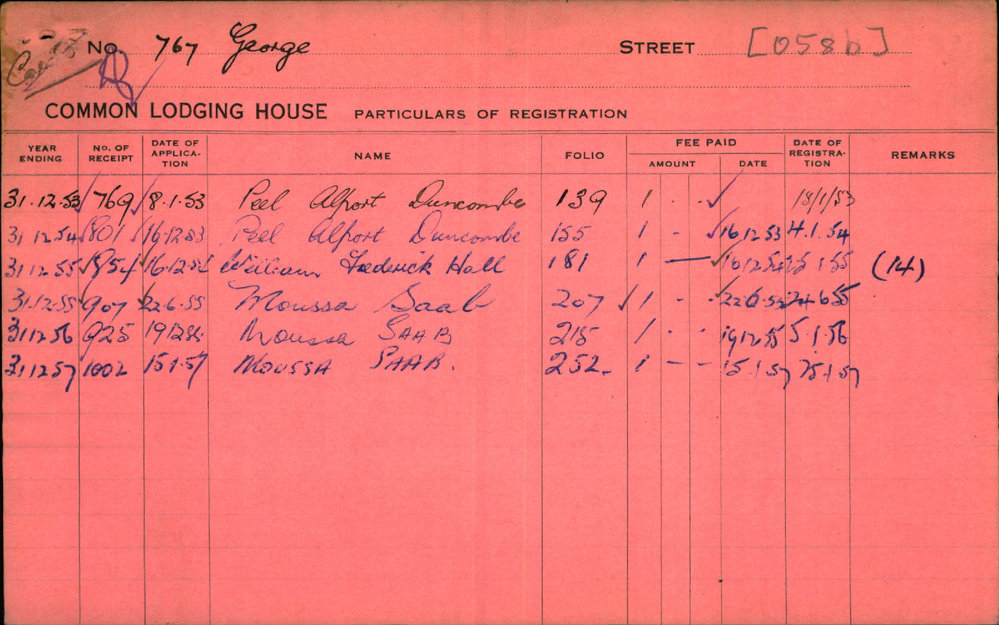 No. 767 George STREET [058b]
COMMON LODGING HOUSE PARTICULARS OF REGISTRATION
YEAR ENDING No. OF RECEIPT DATE OF APPLICA-TION NAME FOLIO FEE PAID AMOUNT DATE DATE OF REGISTRA-TION REMARKS
31.12.53 769 8.1.53 Peel Alport Duncombe 139 1 . . 18/1/53
31 12.54 801 16.12.53 Peel Alport Duncombe 155 1 - 16 12 53 4.1.54
31.12.55 854 16.12.54 William Frederick Hall 181 1 — 16 12 54 1 55 (14)
31.12.55 907 22.6.55 Moussa Saab 207 1 . . 22.6.55 24.6.55
31.12.56 925 19 12 55 Moussa SAAB 215 1 . . 19.12.55 5.1.56
31.12.57 1002 15.1.57 MOUSSA SAAB. 252 1 - - 15.1.57 25.1.57